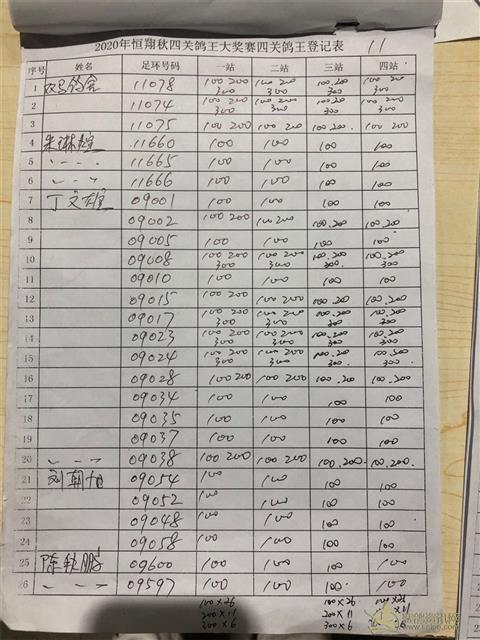 2020年恒翔秋四关鸽王大奖赛四关鸽王登记表 11
序号 姓名 足环号码 一站 二站 三站 四站
1 11078 100 200 300 100 200 300 100.200 300 100 200 300
2 11074 100 200 300 100 200 300 100.200 300 100 200 300
3 11075 100 200 100 200 100.200. 100 200
4 朱 11660 100 100 100 100
5 〃 11665 100 100 100 100
6 〃 11666 100 100 100 100
7 丁文雄 09001 100 100 100 100
8 09002 100 200 100 200 100.200 100.200
9 09005 100 100 100 100
10 09008 100 200 300 100 200 300 100.200 300. 100.200 300
11 09010 100 100 100 100
12 09015 100 200 100 200 100.200 100.200
13 09017 100 200 300 100 200 300 100.200 300. 100.200 300
14 09023 100 200 300 100 200 300 100.200 300 100.200 300
15 09024 100 200 300 100 200 300 100.200 300. 100.200 300.
16 09028 100 200 100 200 100.200 100.200
17 09034 100 100 100 100
18 09035 100 100 100 100
19 09037 100 100 100 100
20 〃 09038 100 200 100 200 100.200. 100.200.
21 刘朝旭 09054 100 100 100 100
22 09052 100 100 100 100
23 09048 100 100 100 100
24 09058 100 100 100 100
25 陈秋鹏 09600 100 100 100 100
26 〃 09597 100 100 100. 100
100×26 100×26 100×26
200×11 200×11 ×11
300×6 300×6